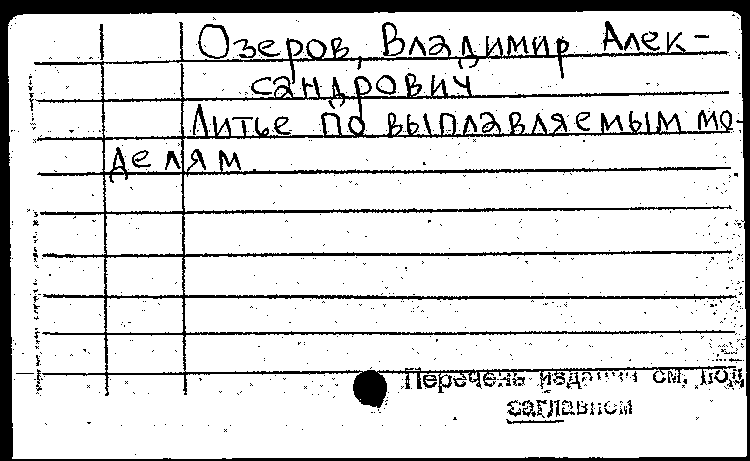 Озеров, Владимир Алек-
сандрович
Литье по выплавляемым мо-
делям
Перечень изданий см. под
заглавием